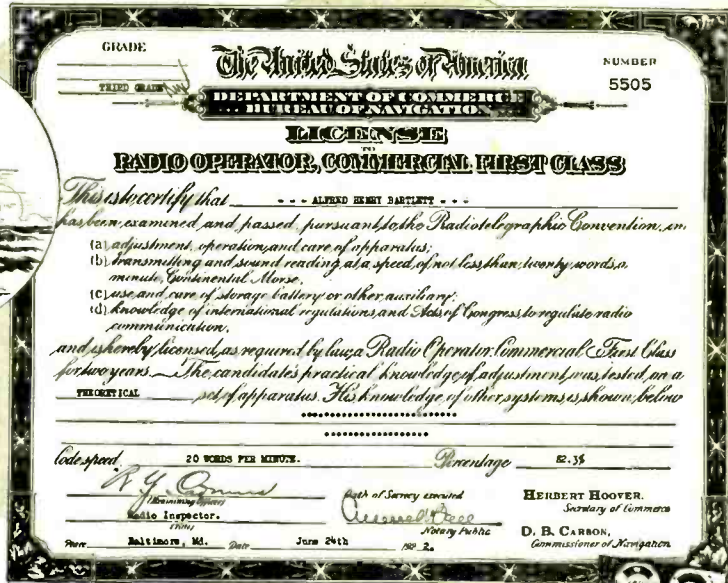 GRADE
THIRD GRADE
The United States of America
NUMBER
5505
DEPARTMENT OF COMMERCE
BUREAU OF NAVIGATION
LICENSE
TO
RADIO OPERATOR, COMMERCIAL FIRST CLASS
This is to certify that - - - ALFRED HENRY BARTLETT - - -
has been examined and passed, pursuant to the Radiotelegraphic Convention, in
(a) adjustment, operation, and care of apparatus;
(b) transmitting and sound reading, at a speed of not less than twenty words, a
minute, Continental Morse,
(c) use and care of storage battery or other auxiliary;
(d) knowledge of international regulations, and Acts of Congress, to regulate radio
communication,
and is hereby licensed, as required by law, a Radio Operator, Commercial First Class
for two years. The candidate's practical knowledge of adjustment, was tested, on a
THEORETICAL set of apparatus. His knowledge of other systems, is shown, below
Code speed, 20 WORDS PER MINUTE. Percentage 82.3%
(Examining Officer)
Radio Inspector.
(Title)
Place Baltimore, Md. Date June 24th
Oath of Secrecy executed
Notary Public
192 2.
HERBERT HOOVER.
Secretary of Commerce
D. B. CARSON,
Commissioner of Navigation